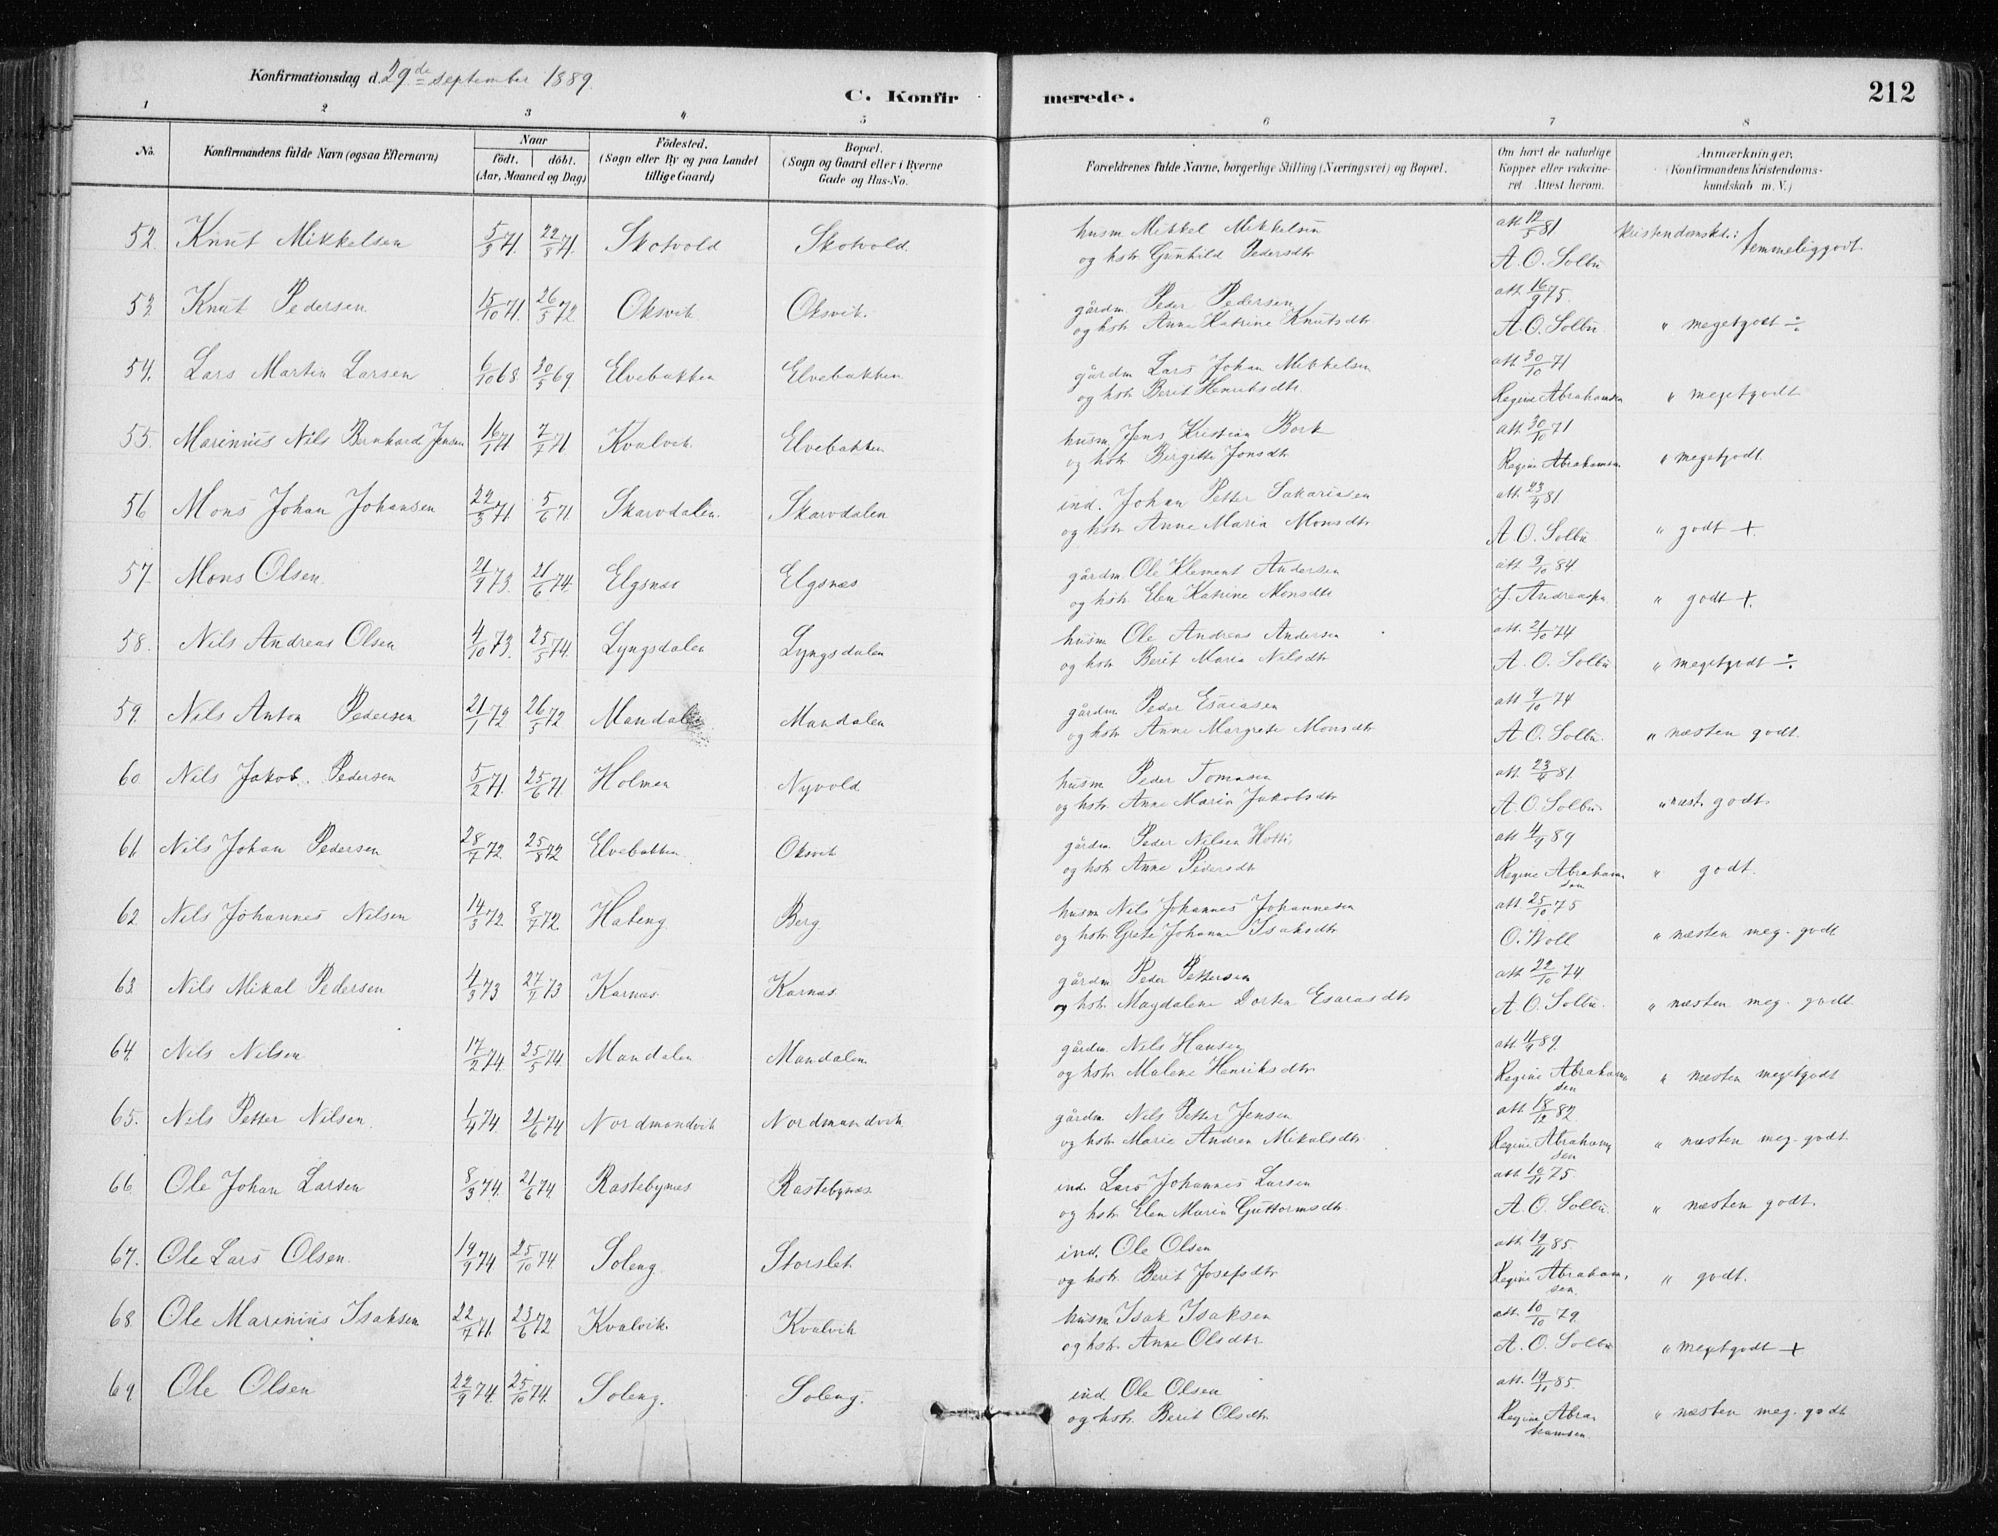 Konfirmationsdag d. 29de september 1889.
C. Konfirmerede.
212
1 2 3 4 5 6 7 8
No. Konfirmandens fulde Navn (ogsaa Efternavn) Naar födt. döbt. (Aar, Maaned og Dag) Födested. (Sogn eller By og paa Landet tillige Gaard) Bopæl. (Sogn og Gaard eller i Byerne Gade og Hus-No. Forældrenes fulde Navne, borgerlige Stilling (Næringsvei) og Bopæl. Om havt de naturlige Kopper eller vakcineret. Attest herom. Anmærkninger. (Konfirmandens Kristendomskundskab m. V.)
52. Knut Mikkelsen 5/3 71. 22/3 71. Skotvold Skotvold. husm Mikkel Mikkelsen att 12/5 81 kristendomskd.: temmelig godt.
og hstr Gunhild Pedersdtr A. O. Solbu
53. Knut Pedersen 15/10 71. 26/5 72 Oksvik Oksvik. gårdm. Peder Pedersen att. 16/9 75.
og hstr Anne Katrine Knutsdtr. A. O. Solbu " megetgodt ÷
54. Lars Martin Larsen 6/10 68 20/5 69 Elvebakken Elvebakken gårdm Lars Johan Mikkelsen att 30/10 71
og hstr Berit Henriksdtr Regine Abrahamsen " megetgodt
55. Marinius Nils Bernhard Jensen 16/1 71 7/7 71 Kvalvik Elvebakken husm Jens Kristian Bork att. 30/10 71
og hstr Bergitte Jonsdtr Regine Abrahamsen " megetgodt
56 Mons Johan Johansen 22/3 71 5/6 71 Skarvdalen. Skarvdalen ind. Johan Petter Sakariasen att. 23/4 81
og hstr Anne Maria Monsdtr A. O. Solbu " godt +
57. Mons Olsen. 21/9 73. 21/6 74. Elgsnæs Elgsnæs gårdm. Ole Klement Andersen att 9/10 84
og hstr Elen Katrine Monsdtr J. Andreassen " godt +.
58. Nils Andreas Olsen 4/10 73. 25/5 74. Lyngsdalen Lyngsdalen husm Ole Andreas Andersen att. 21/10 74
og hstr Berit Maria Nilsdtr A. O. Solbu " megetgodt ÷
59. Nils Anton Pedersen 21/1 72 26/5 72 Mandalen Mandalen gårdm Peder Esaiasen att 9/10 74
og hstr. Anne Margrete Monsdtr A. O. Solbu. " næsten godt.
60 Nils Jakob. Pedersen 5/2 71. 25/6 71 Holmen Nyvold husm Peder Tomasen att. 23/4 81.
og hstr Anne Maria Jakobsdtr A. O. Solbu " næst. godt.
61. Nils Johan Pedersen 28/7 72 25/8 72 Elvebakken Oksvik gårdm Peder Nilsen Hotti, att 4/9 89
og hstr Anne Pedersdtr Regine Abrahamsen " godt.
62 Nils Johannes Nilsen 14/3 72 8/7 72 Hateng Berg. husm Nils Johannes Johannesen att 25/10 75
og hstr Grete Johanne Isaksdtr O. Woll " næsten meg. godt
63. Nils Mikal Pedersen 4/3 73 27/7 73 Karnæs. Karnæs gårdm Peder Pettersen att 22/10 74
og hstr Magdalene Dorten Esaiasdtr A. O. Solbu. " næsten meg. godt.
64. Nils Nilsen 17/2 74. 25/5 74. Mandalen Mandalen gårdm. Nils Hansen att. 4/9 89.
og hstr Malene Henriksdtr Regine Abrahamsen " næsten megetgodt
65. Nils Petter Nilsen. 1/4 74. 21/6 74 Nordmandvik Nordmandvik gårdm Nils Petter Jensen att 18/12 82
og hstr Marie Andrea Mikalsdtr Regine Abrahamsen " næsten meg. godt.
66 Ole Johan Larsen 8/3 74. 21/6 74. Rastebynæs Rastebynæs ind. Lars Johannes Larsen att 10/11 75.
og hstr Elen Maria Guttormsdtr A. O. Solbu. " næsten godt.
67. Ole Lars Olsen. 19/9 74 25/10 74 Soleng Storslet. ind. Ole Olsen att. 19/11 85.
og hstr Berit Josefsdtr Regine Abrahamsen. " godt.
68 Ole Marinius Isaksen 22/7 71. 23/6 72 Kvalvik. Kvalvik husm Isak Isaksen att 10/10 79
og hstr. Anne Olsdtr A. O. Solbu " megetgodt +
69 Ole Olsen 22/9 74. 25/10 74. Soleng. Soleng. ind. Ole Olsen att. 19/11 85.
og hstr Berit Olsdtr Regine Abrahamsen " næsten meg. godt